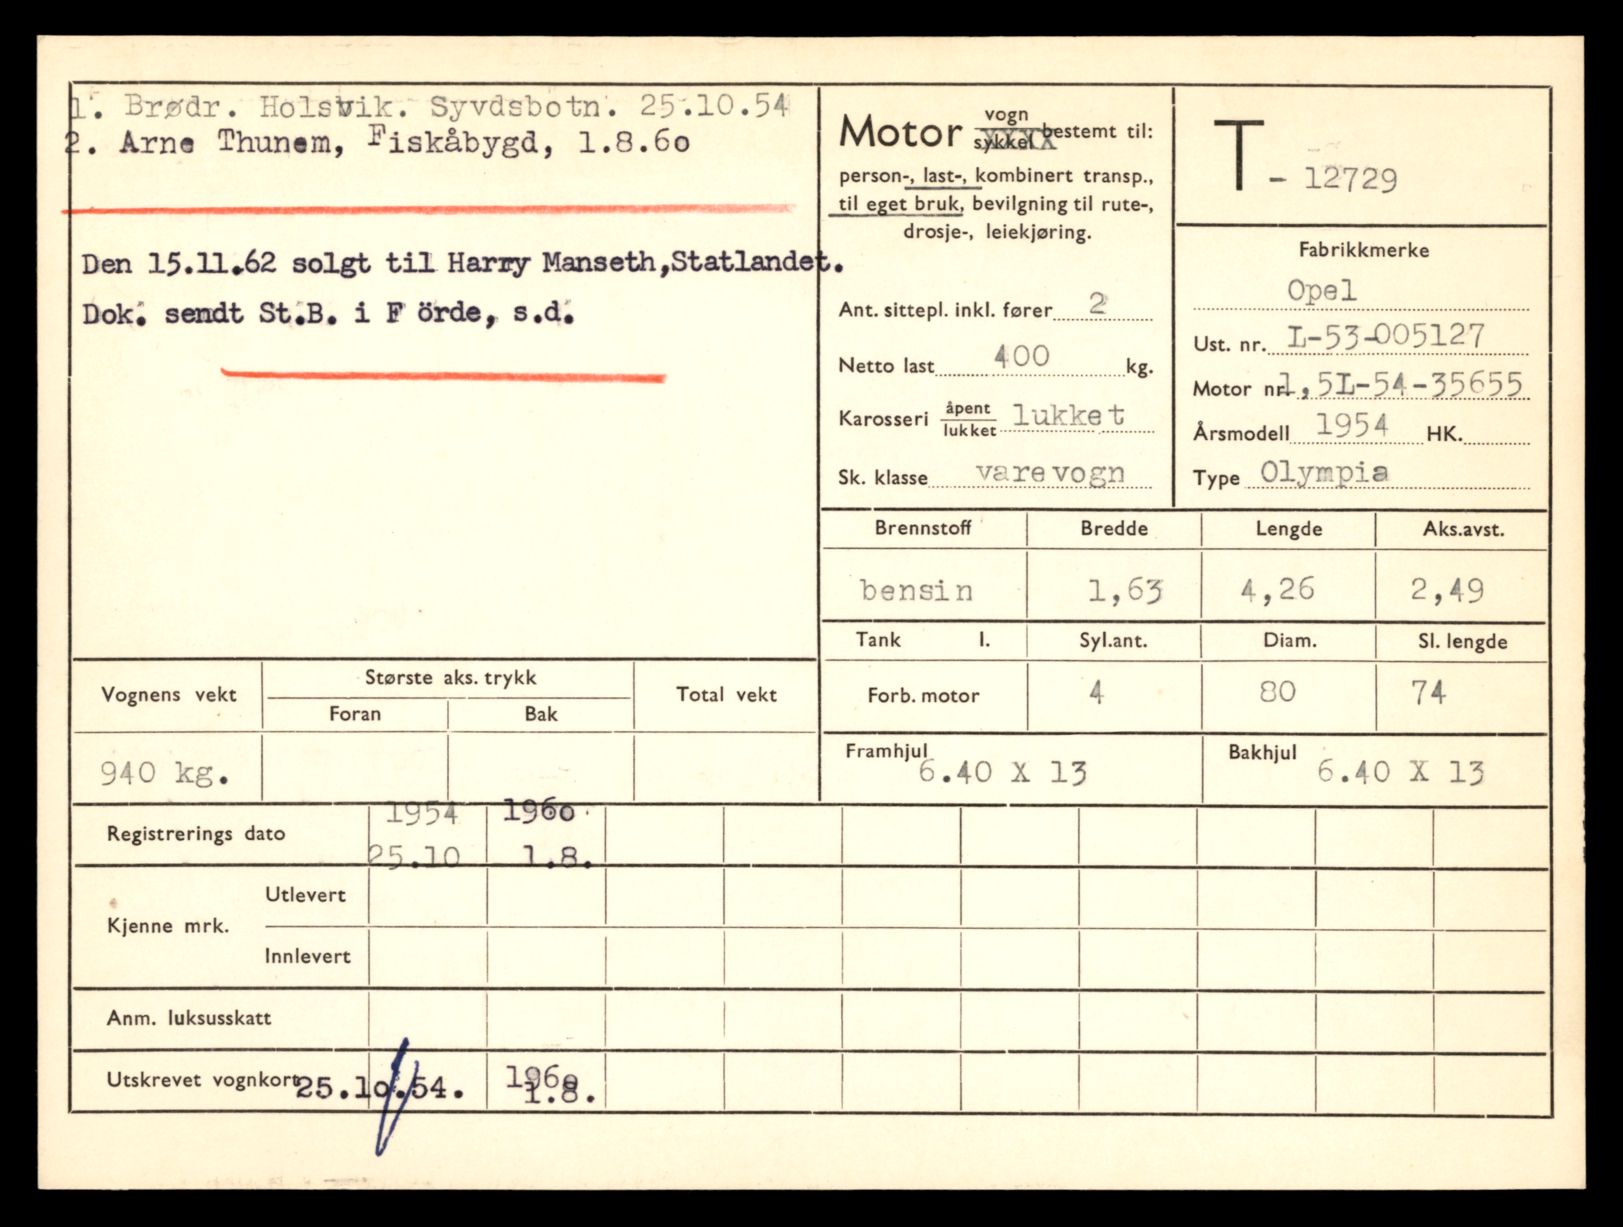 1. Brødr. Holsvik. Syvdsbotn. 25.10.54
2. Arne Thunem, Fiskåbygd, 1.8.60
Den 15.11.62 solgt til Harry Manseth,Statlandet.
Dok. sendt St.B. i F örde, s.d.
Motor vogn
sykkel bestemt til:
person-, last-, kombinert transp.,
til eget bruk, bevilgning til rute-,
drosje-, leiekjøring.
Ant. sittepl. inkl. fører 2
Netto last 400 kg.
Karosseri åpent
lukket lukket
Sk. klasse varevogn
T - 12729
Fabrikkmerke
Opel
Ust. nr. L-53-005127
Motor nr. 1,5L-54-35655
Årsmodell 1954 HK.
Type Olympia
Brennstoff Bredde Lengde Aks.avst.
bensin 1,63 4,26 2,49
Tank l. Syl.ant. Diam. Sl. lengde
Forb. motor 4 80 74
Framhjul 6.40 X 13 Bakhjul 6.40 X 13
Vognens vekt Største aks. trykk Total vekt
Foran Bak
940 kg.
Registrerings dato 1954 1960
25.10 1.8.
Kjenne mrk. Utlevert
Innlevert
Anm. luksusskatt
Utskrevet vognkort 25.10.54. 1960
1.8.